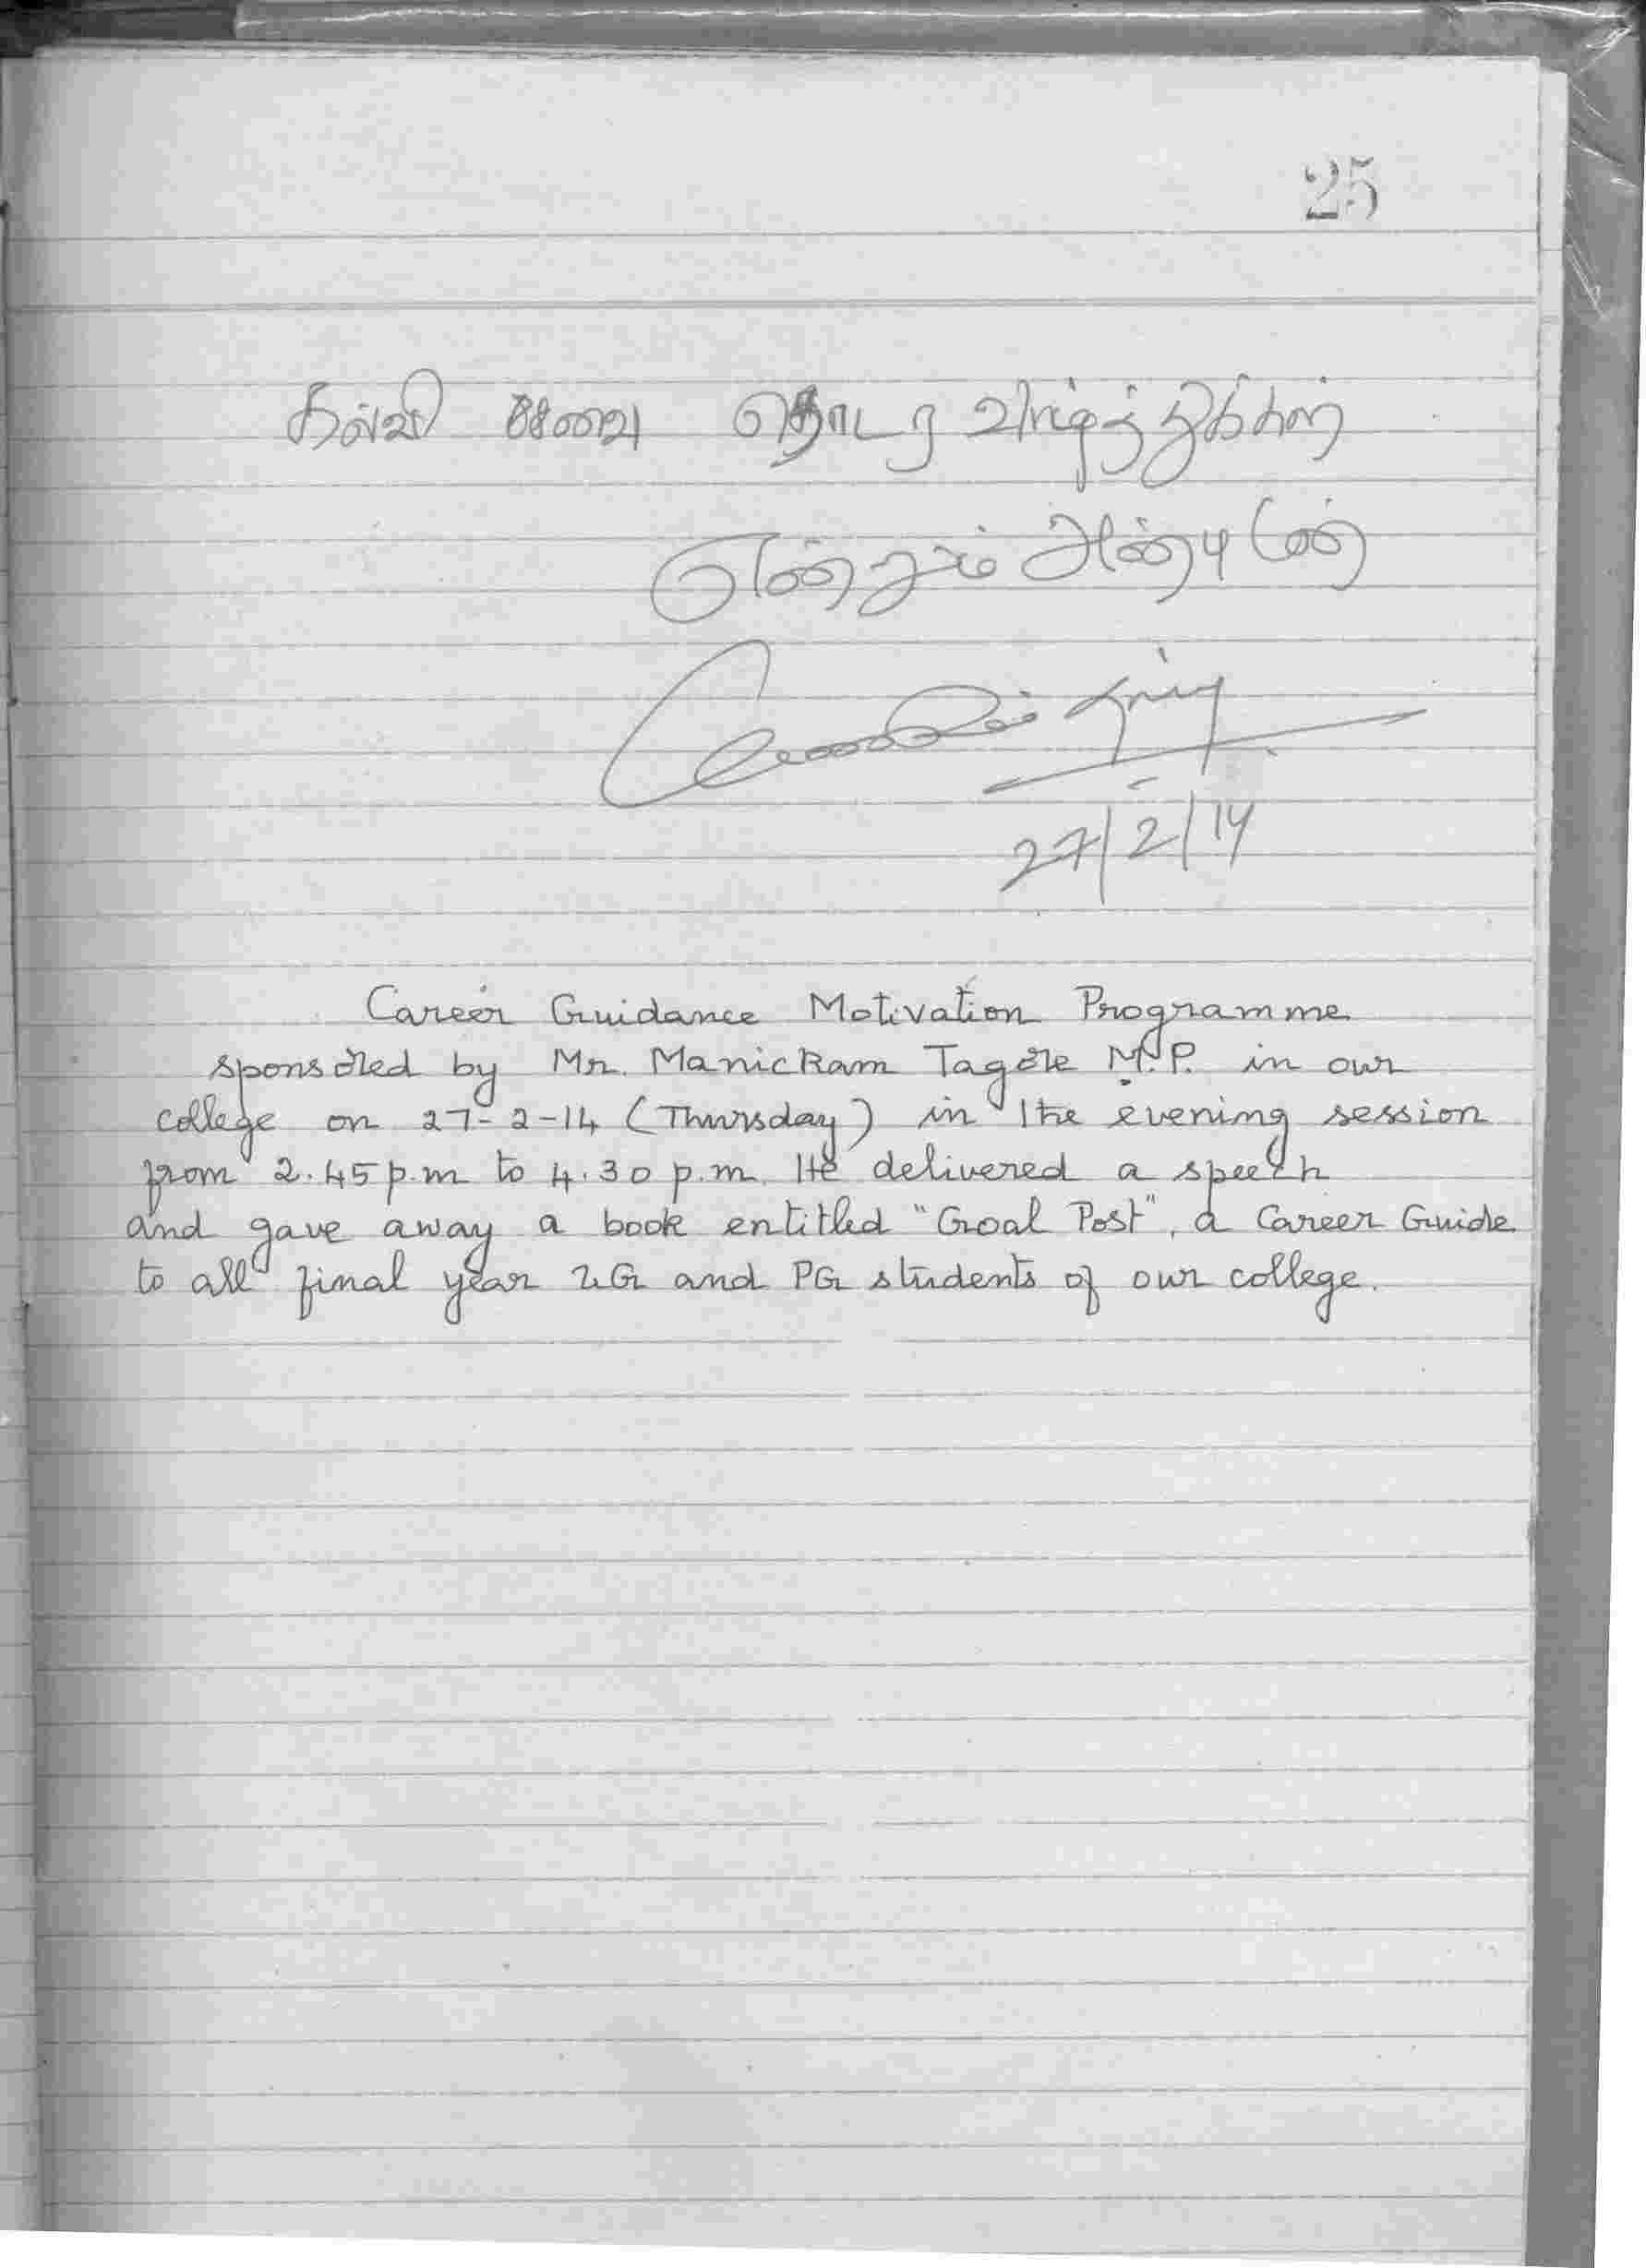 25
கல்வி சேவை தொடர வாழ்த்துக்கள்
என்றும் அன்புடன்
27/2/14
Career Guidance Motivation Programme
sponsored by Mr. Manickam Tagore M.P. in our
college on 27-2-14 (Thursday) in the evening session
from 2.45 p.m to 4.30 p.m. He delivered a speech
and gave away a book entitled "Goal Post", a Career Guide
to all final year UG and PG students of our college.